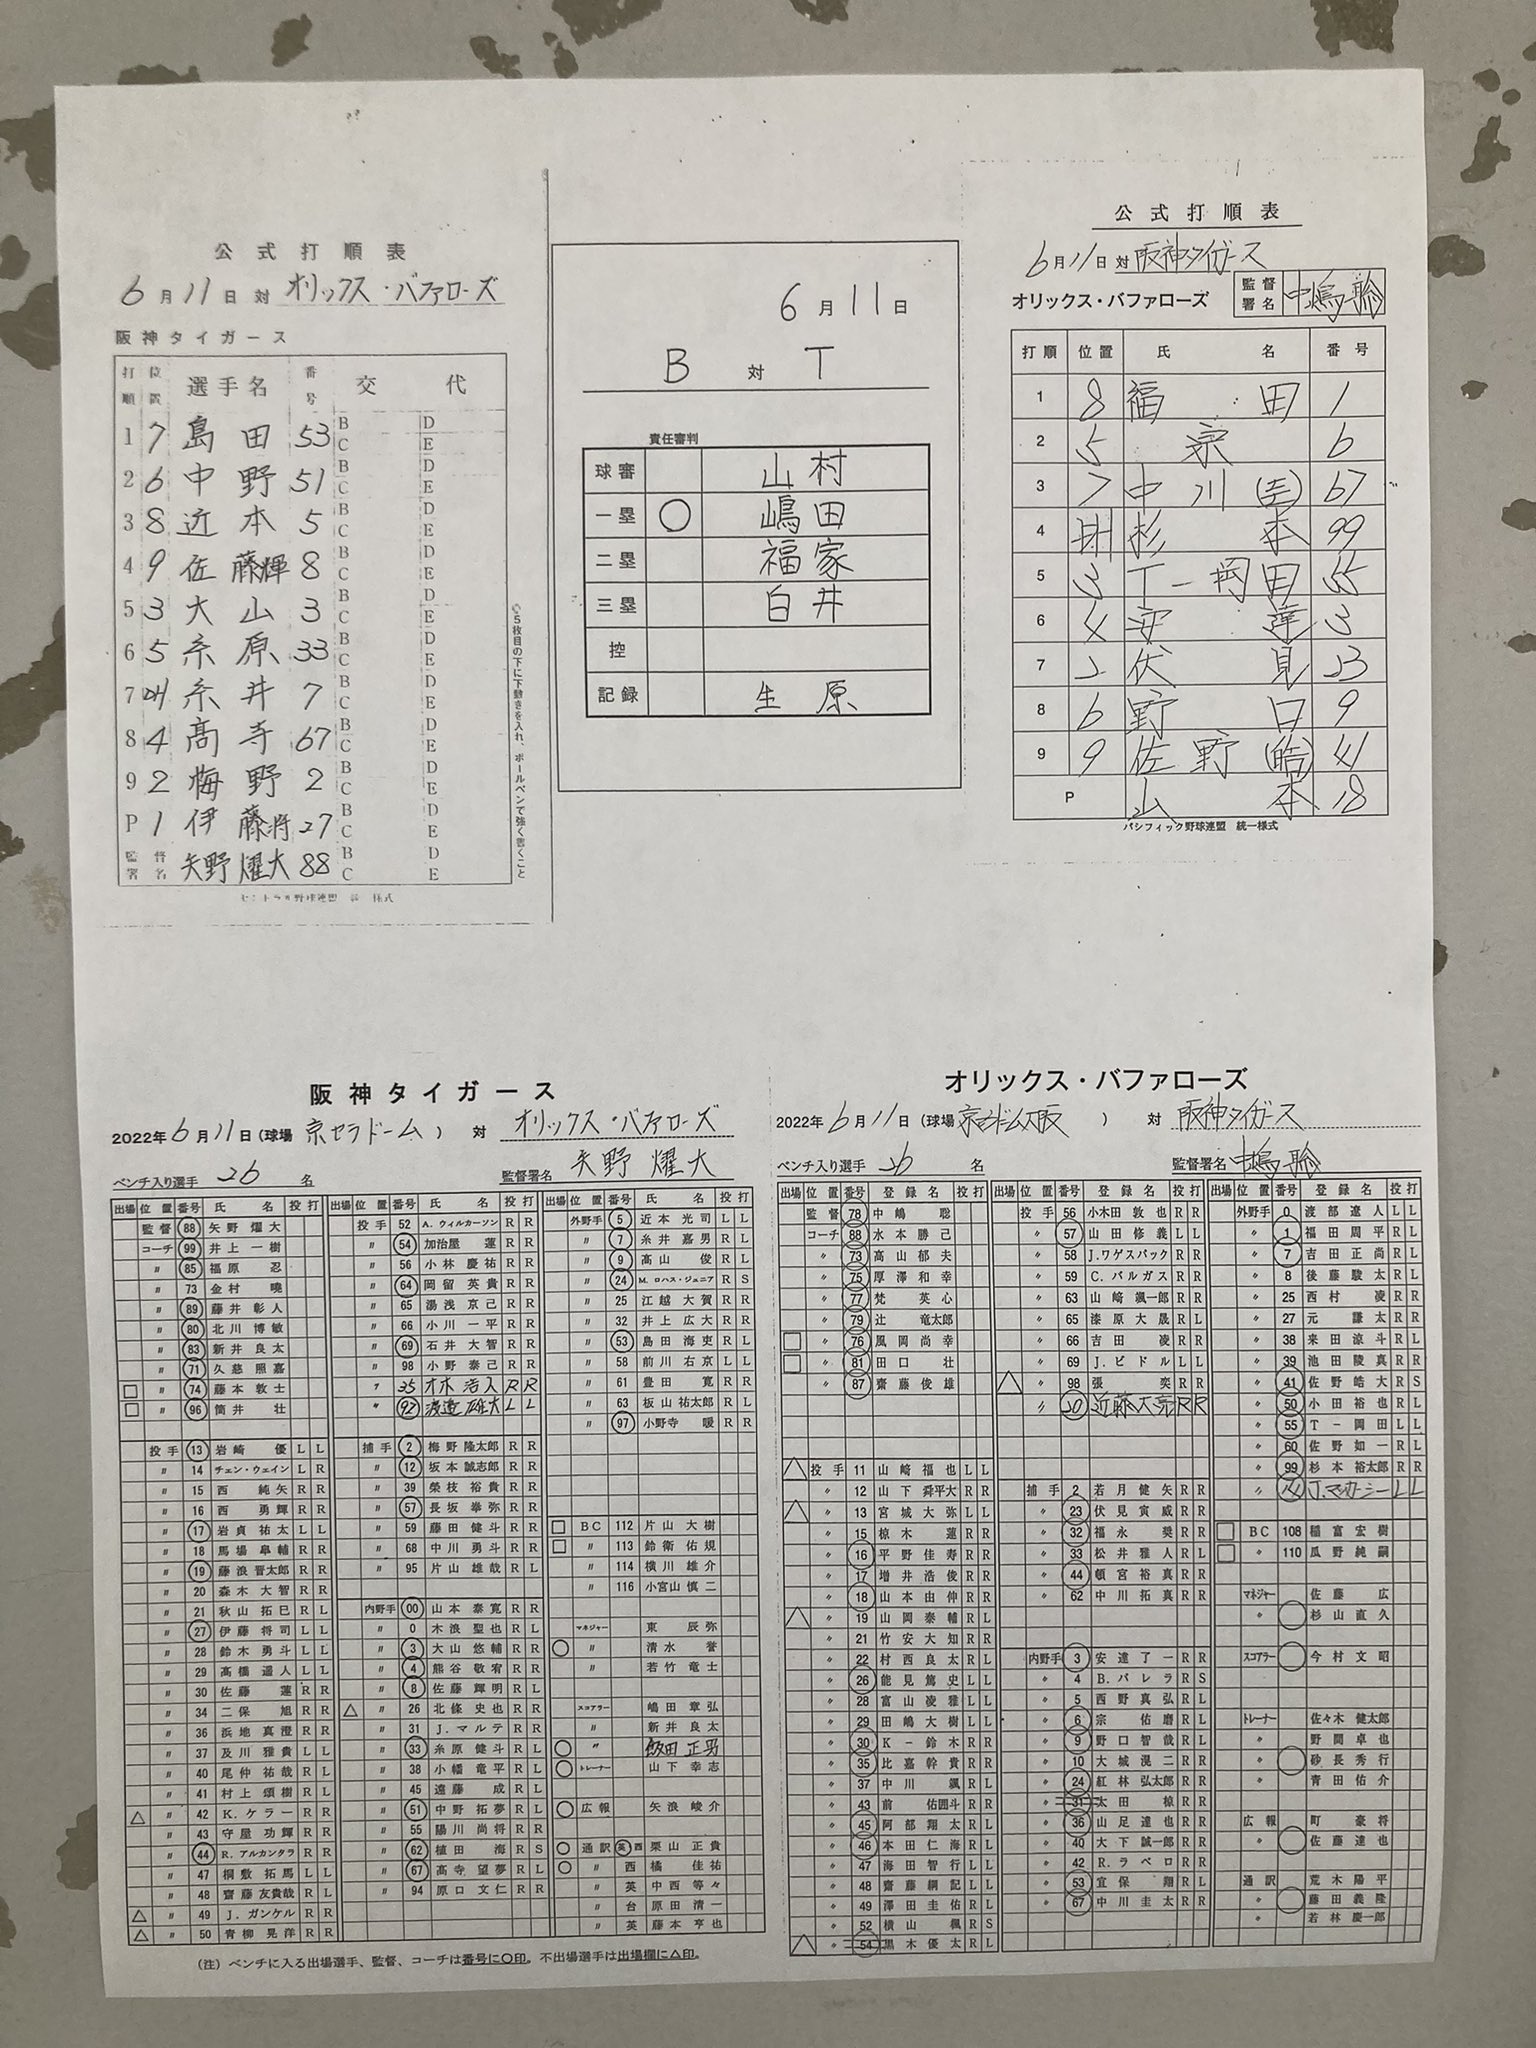 公式打順表
6月11日対 オリックス・バファローズ
阪神タイガース
打順 位置 選手名 番号 交代
1 7 島田 53 B C D E
2 6 中野 51 B C D E
3 8 近本 5 B C D E
4 9 佐藤輝 8 B C D E
5 3 大山 3 B C D E
6 5 糸原 33 B C D E
7 DH 糸井 7 B C D E
8 4 髙寺 67 B C D E
9 2 梅野 2 B C D E
P 1 伊藤将 27 B C D E
監督署名 矢野燿大 88 B C D E
◎5枚目の下に下敷きを入れ、ボールペンで強く書くこと
6月11日
B 対 T
責任審判
球審 山村
一塁 ○ 嶋田
二塁 福家
三塁 白井
控
記録 生原
公式打順表
6月11日対 阪神タイガース
オリックス・バファローズ 監督署名 中嶋聡
打順 位置 氏名 番号
1 8 福田 1
2 5 宗 6
3 7 中川(圭) 67
4 DH 杉本 99
5 3 T-岡田 55
6 4 安達 3
7 2 伏見 23
8 6 野口 9
9 9 佐野(皓) 41
P 山本 18
パシフィック野球連盟 統一様式
阪神タイガース
2022年6月11日(球場 京セラドーム) 対 オリックス・バファローズ
ベンチ入り選手 26名 監督署名 矢野燿大
出場 位置 番号 氏名 投 打
監督 88 矢野燿大
コーチ 99 井上一樹
〃 85 福原忍
〃 73 金村曉
〃 89 藤井彰人
〃 80 北川博敏
〃 83 新井良太
〃 71 久慈照嘉
□ 〃 74 藤本敦士
□ 〃 96 筒井壮
投手 13 岩崎優 L L
〃 14 チェン・ウェイン L R
〃 15 西純矢 R R
〃 16 西勇輝 R R
〃 17 岩貞祐太 L L
〃 18 馬場皐輔 R R
〃 19 藤浪晋太郎 R R
〃 20 森木大智 R R
〃 21 秋山拓巳 R L
〃 27 伊藤将司 L L
〃 28 鈴木勇斗 L L
〃 29 髙橋遥人 L L
〃 30 佐藤蓮 R R
〃 34 二保旭 R R
〃 36 浜地真澄 R R
〃 37 及川雅貴 L L
〃 40 尾仲祐哉 R L
〃 41 村上頌樹 R L
△ 〃 42 K.ケラー R R
〃 43 守屋功輝 R R
〃 44 R.アルカンタラ R R
〃 47 桐敷拓馬 L L
〃 48 齋藤友貴哉 R L
△ 〃 49 J.ガンケル R R
△ 〃 50 青柳晃洋 R R
出場 位置 番号 氏名 投 打
投手 52 A.ウィルカーソン R R
〃 54 加治屋蓮 R R
〃 56 小林慶祐 R R
〃 64 岡留英貴 R R
〃 65 湯浅京己 R R
〃 66 小川一平 R R
〃 69 石井大智 R R
〃 98 小野泰己 R R
〃 35 才木浩人 R R
〃 92 渡邉雄大 L L
捕手 2 梅野隆太郎 R R
〃 12 坂本誠志郎 R R
〃 39 榮枝裕貴 R R
〃 57 長坂拳弥 R R
〃 59 藤田健斗 R R
〃 68 中川勇斗 R R
〃 95 片山雄哉 R L
内野手 00 山本泰寛 R R
〃 0 木浪聖也 R L
〃 3 大山悠輔 R R
〃 4 熊谷敬宥 R R
〃 8 佐藤輝明 R L
△ 〃 26 北條史也 R R
〃 31 J.マルテ R R
〃 33 糸原健斗 R L
〃 38 小幡竜平 R L
〃 45 遠藤成 R L
〃 51 中野拓夢 R L
〃 55 陽川尚将 R R
〃 62 植田海 R S
〃 67 髙寺望夢 R L
〃 94 原口文仁 R R
出場 位置 番号 氏名 投 打
外野手 5 近本光司 L L
〃 7 糸井嘉男 R L
〃 9 髙山俊 R L
〃 24 M.ロハス・ジュニア R S
〃 25 江越大賀 R R
〃 32 井上広大 R R
〃 53 島田海吏 R L
〃 58 前川右京 L L
〃 61 豊田寛 R R
〃 63 板山祐太郎 R L
〃 97 小野寺暖 R R
□ BC 112 片山大樹
□ 〃 113 鈴衛佑規
〃 114 横川雄介
〃 116 小宮山慎二
マネジャー 東辰弥
○ 〃 清水誉
〃 若竹竜士
スコアラー 嶋田章弘
〃 新井良太
○ 〃 飯田正男
○ トレーナー 山下幸志
○ 広報 矢浪峻介
○ 通訳 英西 栗山正貴
○ 〃 西 橘佳祐
〃 英 中西等々
〃 台 原田清一
〃 英 藤本亨也
(注)ベンチに入る出場選手、監督、コーチは番号に○印。不出場選手は出場欄に△印。
オリックス・バファローズ
2022年6月11日(球場 京セラドーム大阪) 対 阪神タイガース
ベンチ入り選手 26名 監督署名 中嶋聡
出場 位置 番号 登録名 投 打
監督 78 中嶋聡
コーチ 88 水本勝己
〃 73 髙山郁夫
〃 75 厚澤和幸
〃 77 梵英心
〃 79 辻竜太郎
□ 〃 76 風岡尚幸
□ 〃 81 田口壮
〃 87 齋藤俊雄
△ 投手 11 山﨑福也 L L
〃 12 山下舜平大 R R
△ 〃 13 宮城大弥 L L
〃 15 椋木蓮 R R
〃 16 平野佳寿 R R
〃 17 増井浩俊 R R
〃 18 山本由伸 R R
△ 〃 19 山岡泰輔 R L
〃 21 竹安大知 R R
〃 22 村西良太 R L
〃 26 能見篤史 L L
〃 28 富山凌雅 L L
〃 29 田嶋大樹 L L
〃 30 K-鈴木 R R
〃 35 比嘉幹貴 R R
〃 37 中川颯 R L
〃 43 前佑囲斗 R R
〃 45 阿部翔太 R L
〃 46 本田仁海 R L
〃 47 海田智行 L L
〃 48 齋藤綱記 L L
〃 49 澤田圭佑 R L
〃 52 横山楓 R S
△ 〃 54 黒木優太 R L
出場 位置 番号 登録名 投 打
投手 56 小木田敦也 R R
〃 57 山田修義 L L
〃 58 J.ワゲスパック R R
〃 59 C.バルガス R R
〃 63 山﨑颯一郎 R R
〃 65 漆原大晟 R L
〃 66 吉田凌 R R
〃 69 J.ビドル L L
△ 〃 98 張奕 R R
〃 20 近藤大亮 R R
捕手 2 若月健矢 R R
〃 23 伏見寅威 R R
〃 32 福永奨 R R
〃 33 松井雅人 R L
〃 44 頓宮裕真 R R
〃 62 中川拓真 R R
内野手 3 安達了一 R R
〃 4 B.バレラ R S
〃 5 西野真弘 R L
〃 6 宗佑磨 R L
〃 9 野口智哉 R L
〃 10 大城滉二 R R
〃 24 紅林弘太郎 R R
〃 31 太田椋 R R
〃 36 山足達也 R R
〃 40 大下誠一郎 R R
〃 42 R.ラベロ R R
〃 53 宜保翔 R L
〃 67 中川圭太 R R
出場 位置 番号 登録名 投 打
外野手 0 渡部遼人 L L
〃 1 福田周平 R L
〃 7 吉田正尚 R L
〃 8 後藤駿太 R L
〃 25 西村凌 R R
〃 27 元謙太 R R
〃 38 来田涼斗 R L
〃 39 池田陵真 R R
〃 41 佐野皓大 R S
〃 50 小田裕也 R L
〃 55 T-岡田 L L
〃 60 佐野如一 R L
〃 99 杉本裕太郎 R R
〃 J.マッカーシー L L
□ BC 108 稲富宏樹
□ 〃 110 瓜野純嗣
マネジャー 佐藤広
〃 ○ 杉山直久
スコアラー ○ 今村文昭
トレーナー 佐々木健太郎
〃 野間卓也
〃 ○ 砂長秀行
〃 青田佑介
広報 町豪将
〃 ○ 佐藤達也
通訳 荒木陽平
〃 ○ 藤田義隆
〃 若林慶一郎